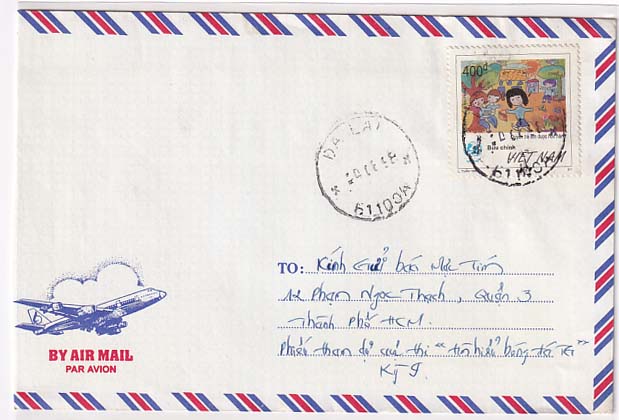 400đ
Bưu chính
VIỆT NAM
DA LAT
TO: Kính Gửi báo Mực Tím
12 Phạm Ngọc Thạch, Quận 3
Thành Phố HCM.
Phiếu tham dự cuộc thi "tìm hiểu bóng đá
Kỳ 9.
BY AIR MAIL
PAR AVION